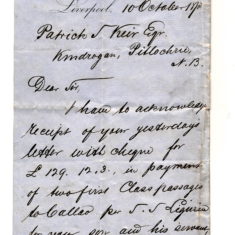 Liverpool, 10 October 187
Patrick S. Keir Esqr.
Kindrogan, Pitlochrie,
N.B.
Dear Sir,
I have to acknowledge
receipt of your yesterday's
letter with cheque for
£129.12.3., in payment
of two first Class passages
to Callao per S. S.
for your son and his servant